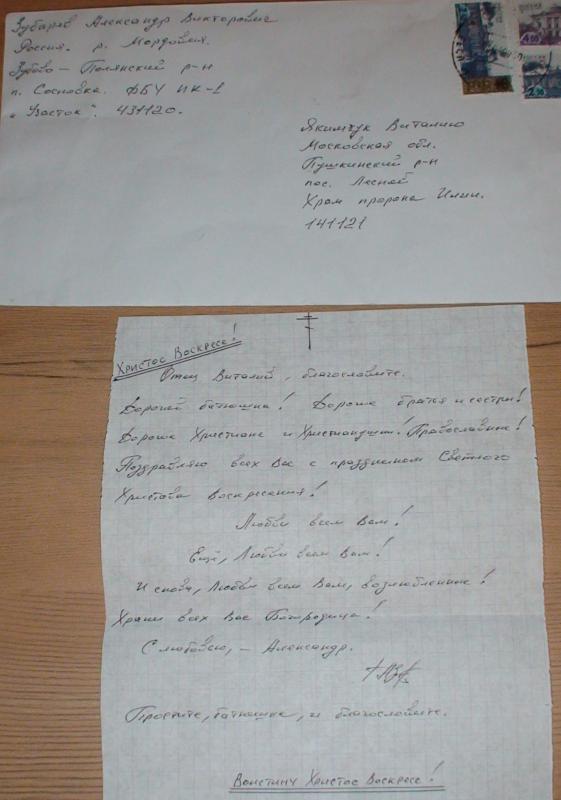 Зубарев Александр Викторович
Россия. р. Мордовия.
Зубово-Полянский р-н
п. Сосновка. ФБУ ИК-1
431120.
Якимчук Виталию
Московская обл.
Пушкинский р-н
пос. Лесной
Храм пророка Илии.
141121
Христос Воскресе!
Отец Виталий, благословите.
Дорогой батюшка! Дорогие братья и сестры!
Дорогие Христиане и Христианушки! Православные!
Поздравляю всех Вас с праздником Светного
Христова Воскресения!
Любви всем Вам!
Ещё, Любви всем Вам!
И снова, Любви всем Вам, возлюбленные!
Храни всех Вас Богородица!
С любовью, – Александр.
Простите, батюшка, и благословите.
Воистину Христос Воскресе!